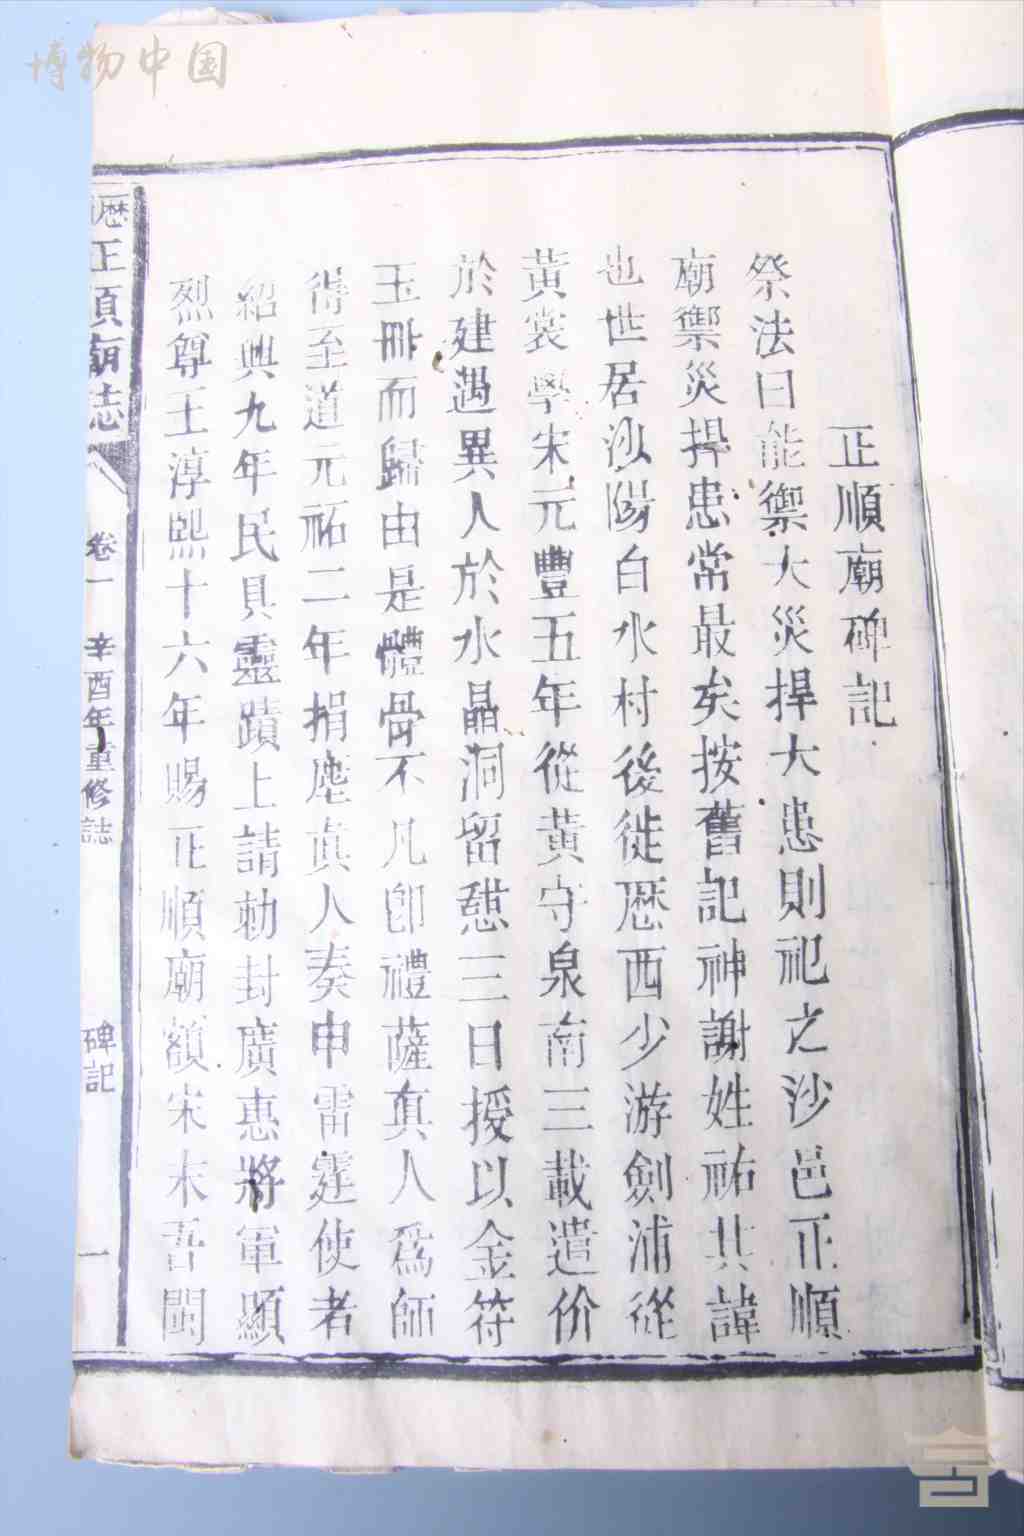 博物中国
正順廟碑記
祭法曰能禦大災捍大患則祀之沙邑正順
廟禦災捍患常最矣按舊記神謝姓祐其諱
也世居沙陽白水村後徙歷西少游劍浦從
黃裳學宋元豐五年從黃守泉南三載遣价
於建遇異人於水晶洞留憩三日授以金符
玉冊而歸由是體骨不凡卽禮薩真人為師
得至道元祐二年捐塵真人奏申雷霆使者
紹興九年民具靈蹟上請勅封廣惠將軍顯
烈尊王淳熙十六年賜正順廟額宋末吾閩
歷正順廟志
卷一
辛酉年重修誌
碑記
一